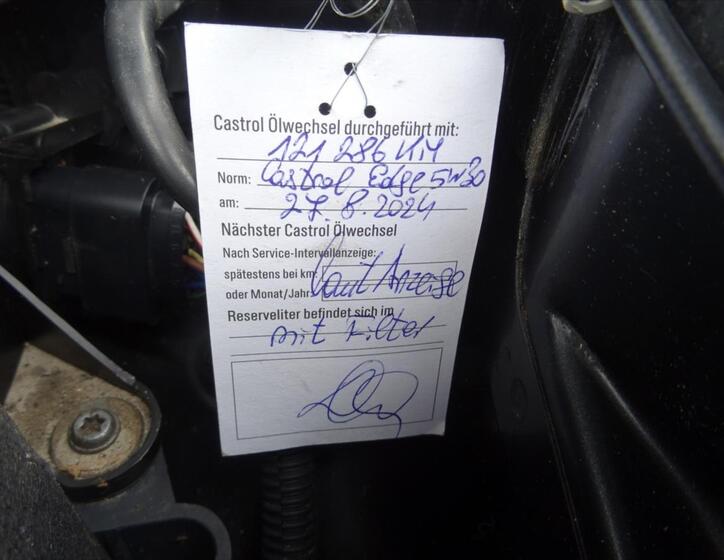 Castrol Ölwechsel durchgeführt mit:
121 286 KM
Norm: Castrol Edge 5W30
am: 27.8.2024
Nächster Castrol Ölwechsel
Nach Service-Intervallanzeige:
spätestens bei km: laut Anzeige
oder Monat/Jahr:
Reserveliter befindet sich im
mit Filter